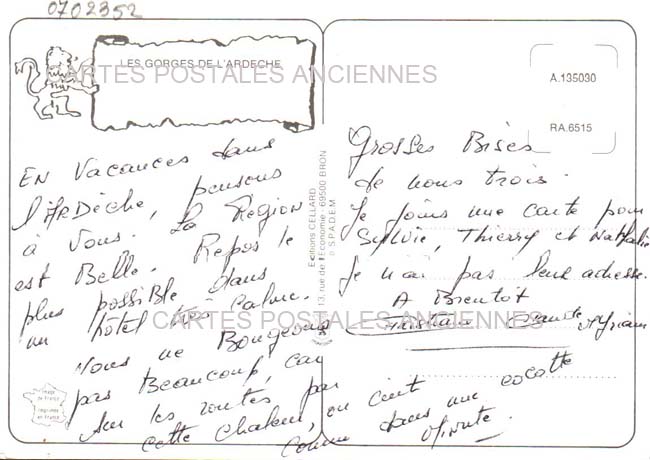 0702352
LES GORGES DE L'ARDECHE
CARTES POSTALES ANCIENNES
A.135030
RA.6515
EN Vacances dans
l'ARDèche, pensons
à Vous. La Région
est Belle. Repos le
plus possible dans
un hôtel très calme.
Nous ne Bougeons
pas Beaucoup, car
sur les routes par
cette chaleur, on cuit
comme dans une cocotte
minute.
Editions CELLARD
13, rue de l'Economie - 69500 BRON
© SPADEM
Grosses Bises
de nous trois.
Je joins une carte pour
Sylvie, Thierry et Nathalie
Je n'ai pas leur adresse.
A Bientôt
CARTES POSTALES ANCIENNES
Myriam
Image
de France
Imprimée
en France